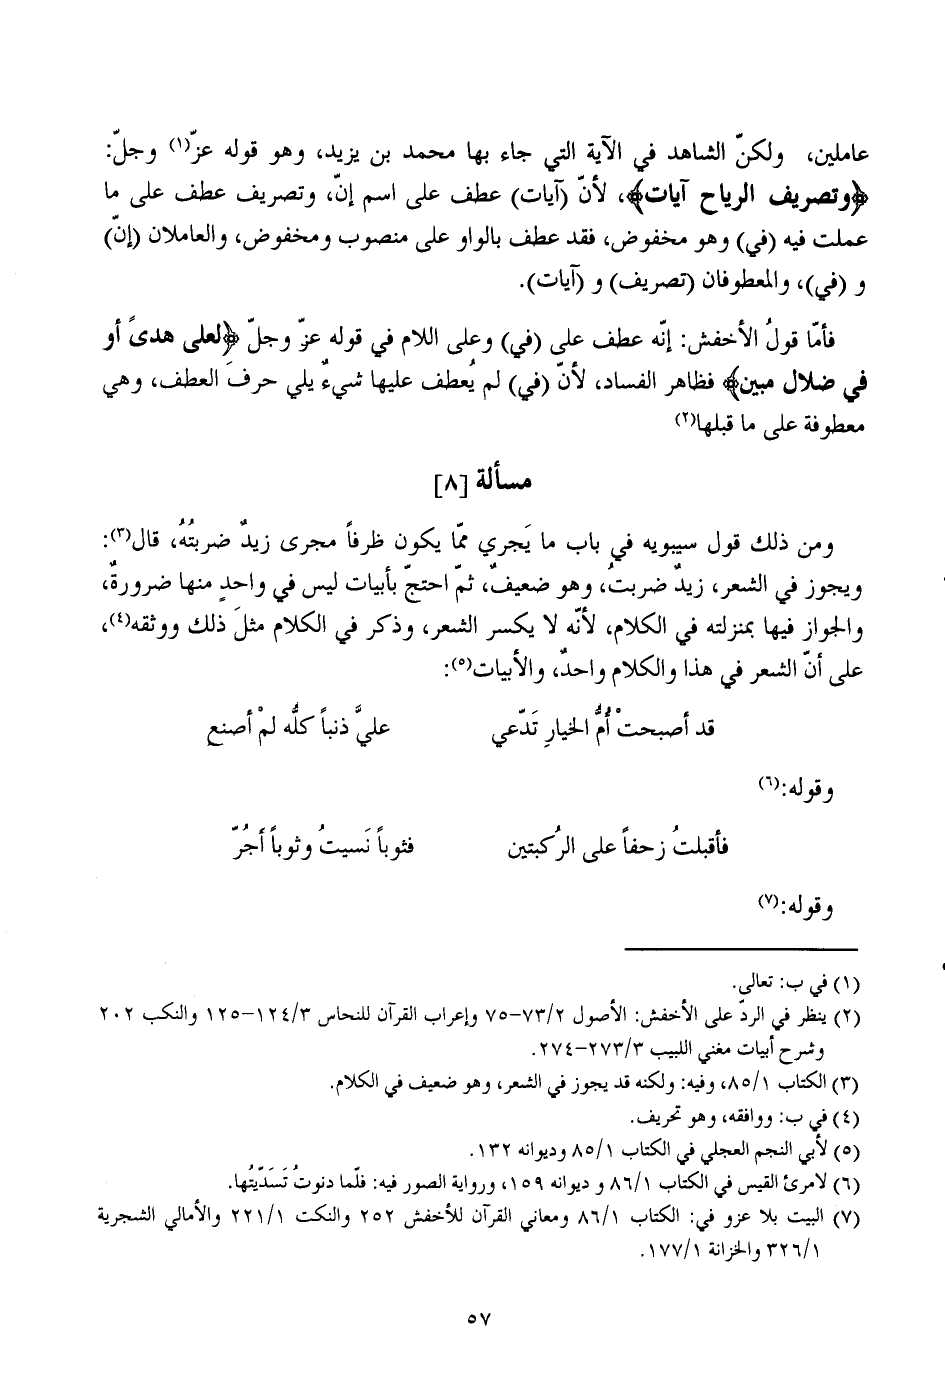 عاملين، ولكنّ الشاهد في الآية التي جاء بها محمد بن يزيد، وهو قوله عزّ(١) وجلّ:
﴿وتصريف الرياح آيات﴾، لأنّ (آيات) عطف على اسم إنّ، وتصريف عطف على ما
عملت فيه (في) وهو مخفوض، فقد عطف بالواو على منصوب ومخفوض، والعاملان (إنّ)
و (في)، والمعطوفان (تصريف) و (آيات).
فأمّا قولُ الأخفش: إنّه عطف على (في) وعلى اللام في قوله عزّ وجلّ ﴿لعلى هدىً أو
في ضلال مبين﴾ فظاهر الفساد، لأنّ (في) لم يُعطف عليها شيءٌ يلي حرفَ العطف، وهي
معطوفة على ما قبلها(٢)
مسألة [٨]
ومن ذلك قول سيبويه في باب ما يَجري ممّا يكون ظرفاً مجرى زيدٌ ضربتُهُ، قال(٣):
ويجوز في الشعر، زيدٌ ضربتُ، وهو ضعيفٌ، ثمّ احتجّ بأبيات ليس في واحدٍ منها ضرورةٌ،
والجواز فيها بمنزلته في الكلام، لأنّه لا يكسر الشعر، وذكر في الكلام مثلَ ذلك ووثقه(٤)،
على أنّ الشعر في هذا والكلام واحدٌ، والأبيات(٥):
قد أصبحتْ أمُّ الخيارِ تَدّعي عليَّ ذنباً كلُّه لمْ أصنع
وقوله:(٦)
فأقبلتُ زحفاً على الرُكبتين فثوباً نَسيتُ وثوباً أجُرّ
وقوله:(٧)
(١) في ب: تعالى.
(٢) ينظر في الردّ على الأخفش: الأصول ٧٣/٢-٧٥ وإعراب القرآن للنحاس ١٢٤/٣-١٢٥ والنكب ٢٠٢
وشرح أبيات مغني اللبيب ٢٧٣/٣-٢٧٤.
(٣) الكتاب ٨٥/١، وفيه: ولكنه قد يجوز في الشعر، وهو ضعيف في الكلام.
(٤) في ب: ووافقه، وهو تحريف.
(٥) لأبي النجم العجلي في الكتاب ٨٥/١ وديوانه ١٣٢.
(٦) لامرئ القيس في الكتاب ٨٦/١ و ديوانه ١٥٩، ورواية الصور فيه: فلّما دنوتُ تَسَدّيتُها.
(٧) البيت بلا عزو في: الكتاب ٨٦/١ ومعاني القرآن للأخفش ٢٥٢ والنكت ٢٢١/١ والأمالي الشجرية
٣٢٦/١ والخزانة ١٧٧/١.
٥٧